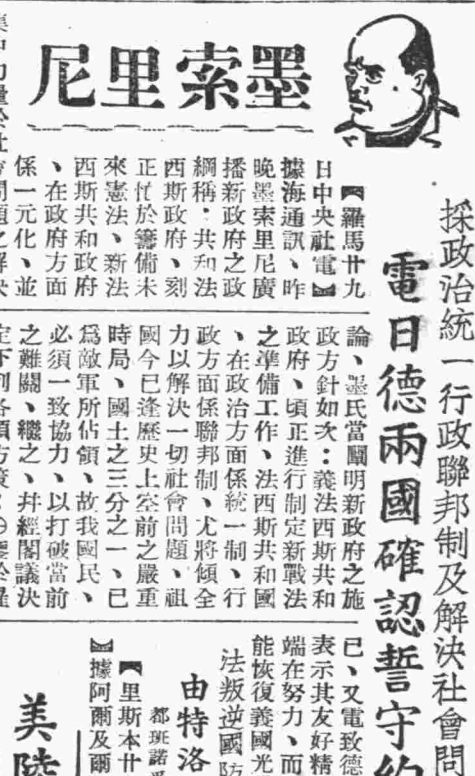 墨索里尼
採政治統一行政聯邦制及解決社會問
電日德兩國確認誓守約
【羅馬廿九
日中央社電】
據海通訊、昨
晚墨索里尼廣
播新政府之政
綱稱・共和法
西斯政府、刻
正忙於籌備未
來憲法、新法
西斯共和政府
、在政府方面
係一元化、並
論、墨氏當闡明新政府之施
政方針如次：義法西斯共和
政府、頃正進行制定新戰法
之準備工作、法西斯共和國
、在政治方面係統一制、行
政方面係聯邦制、尤將傾全
力以解決一切社會問題、祖
國今已逢歷史上空前之嚴重
時局、國土之三分之一、已
爲敵軍所佔領、故我國民、
必須一致協力、以打破當前
之難關、繼之、并經閣議決
已、又電致德
表示其友好精
端在努力、而
能恢復義國光
法叛逆國防
由特洛
都班諾
【里斯本廿
】據阿爾及爾
美陸